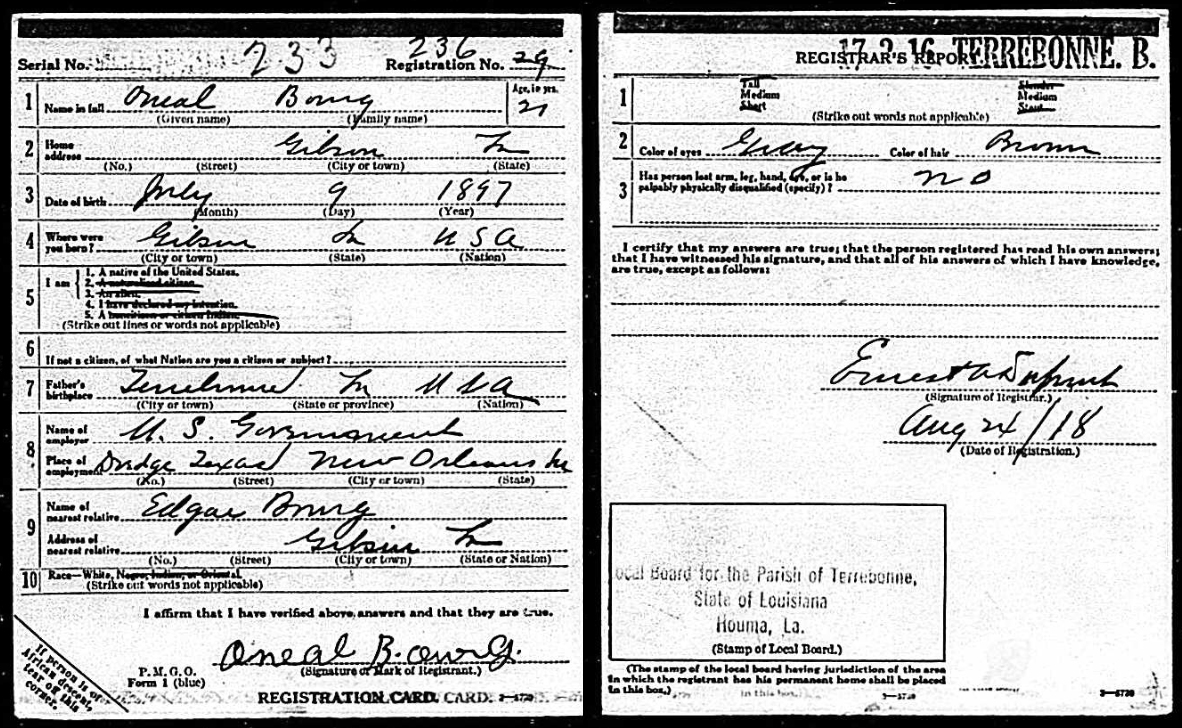 233 236
Serial No. Registration No. 29
1 Name in full Oneal Bourg Age, in yrs. 21
(Given name) (Family name)
2 Home address Gibson La
(No.) (Street) (City or town) (State)
3 Date of birth July 9 1897
(Month) (Day) (Year)
4 Where were you born? Gibson La U S A
(City or town) (State) (Nation)
5 I am
1. A native of the United States.
2. A naturalized citizen.
3. An alien.
4. I have declared my intention.
5. A noncitizen or citizen Indian.
(Strike out lines or words not applicable)
6 If not a citizen, of what Nation are you a citizen or subject?
7 Father's birthplace Terrebonne La U S A
(City or town) (State or province) (Nation)
8 Name of employer U. S. Government
Place of employment Dredge Texas New Orleans La
(No.) (Street) (City or town) (State)
9 Name of nearest relative Edgar Bourg
Address of nearest relative Gibson La
(No.) (Street) (City or town) (State or Nation)
10 Race—White, Negro, Indian, or Oriental.
(Strike out words not applicable)
I affirm that I have verified above answers and that they are true.
Oneal B.ourG.
(Signature or Mark of Registrant.)
P.M.G.O.
Form 1 (blue)
REGISTRATION CARD. CARD:
If person is of
African descent,
tear off this
corner.
17-2-16 TERREBONNE. B.
REGISTRAR'S REPORT
1 Tall Slender
Medium Medium
Short Stout
(Strike out words not applicable)
2 Color of eyes Gray Color of hair Brown
3 Has person lost arm, leg, hand, eye, or is he
palpably physically disqualified (specify)? no
I certify that my answers are true; that the person registered has read his own answers;
that I have witnessed his signature, and that all of his answers of which I have knowledge,
are true, except as follows:
Ernest A Dupont
(Signature of Registrar.)
Aug 24/18
(Date of Registration.)
Local Board for the Parish of Terrebonne,
State of Louisiana
Houma, La.
(Stamp of Local Board.)
(The stamp of the local board having jurisdiction of the area
in which the registrant has his permanent home shall be placed
in this box.)
3—5729